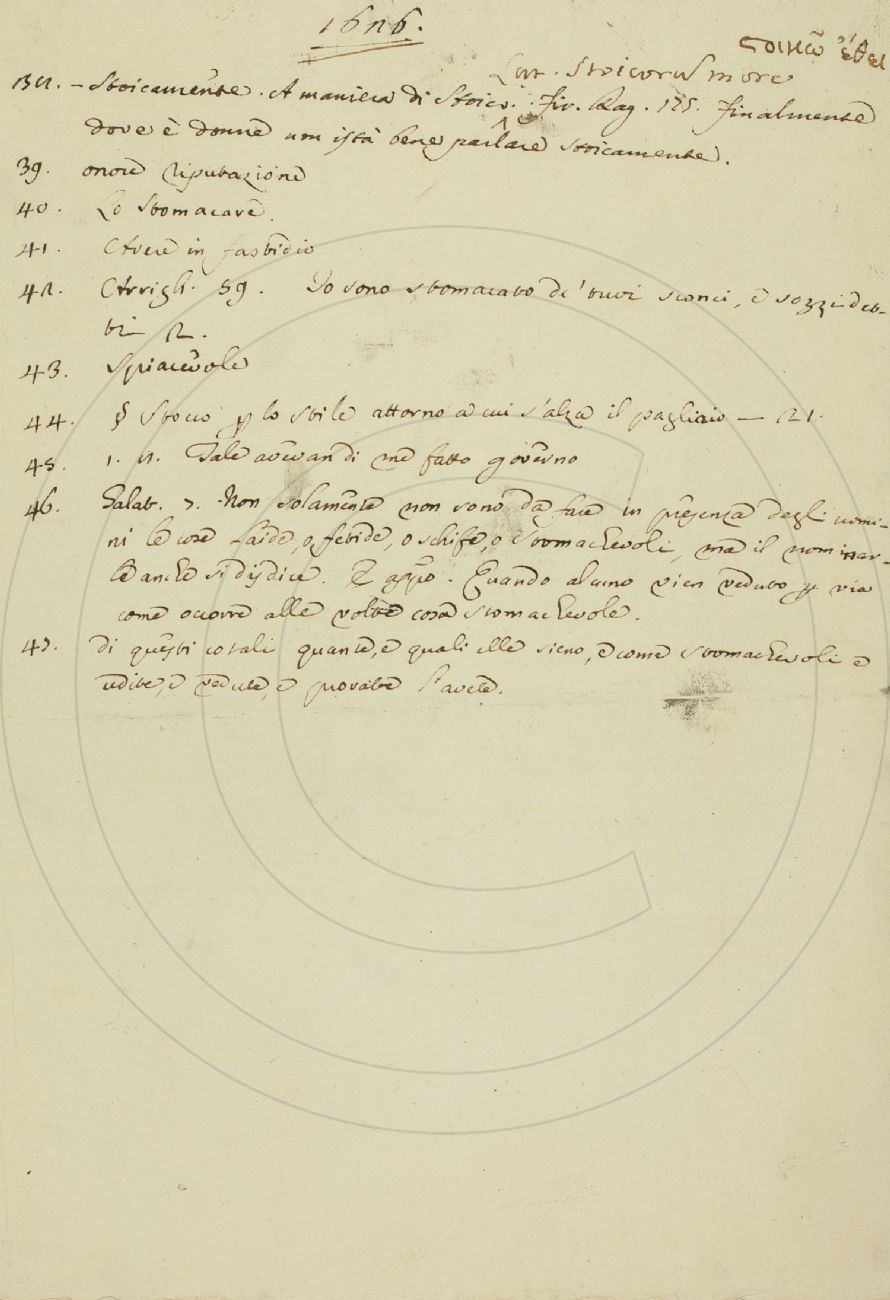 1626.
στωικῷ ἔθει
Lat. Stoicorũ more
132. – Stoicamente. A maniera di Stoico. Fir. Rag. 155. Finalmente
dove è donne non istà bene parlare stoicamente.
39. onore riputazione
40. Lo Stomacare.
41. Avere in fastidio
42. Arrigh. 59. Io sono stomacato de' tuoi sconci, e sozzi det-
ti 2.
43. Spiacevole
44. § Stocco p lo stile attorno a cui s'alza il pagliaio — 21.
45. 1. 2. Tale avevan di me fatto governo
46. Galat. 7. Non solamente non sono da fare in presenza degli uomi-
ni le cose laide, o fetide, o schife, o stomachevoli, ma il nominar-
le anche si disdice. E appo. Quando alcuno vien veduto p via
come occorre alle volte cosa stomachevole.
47. di questi cotali quante, e quali elle sieno, e come stomachevoli e
udite, e vedute, e provate l'avete.